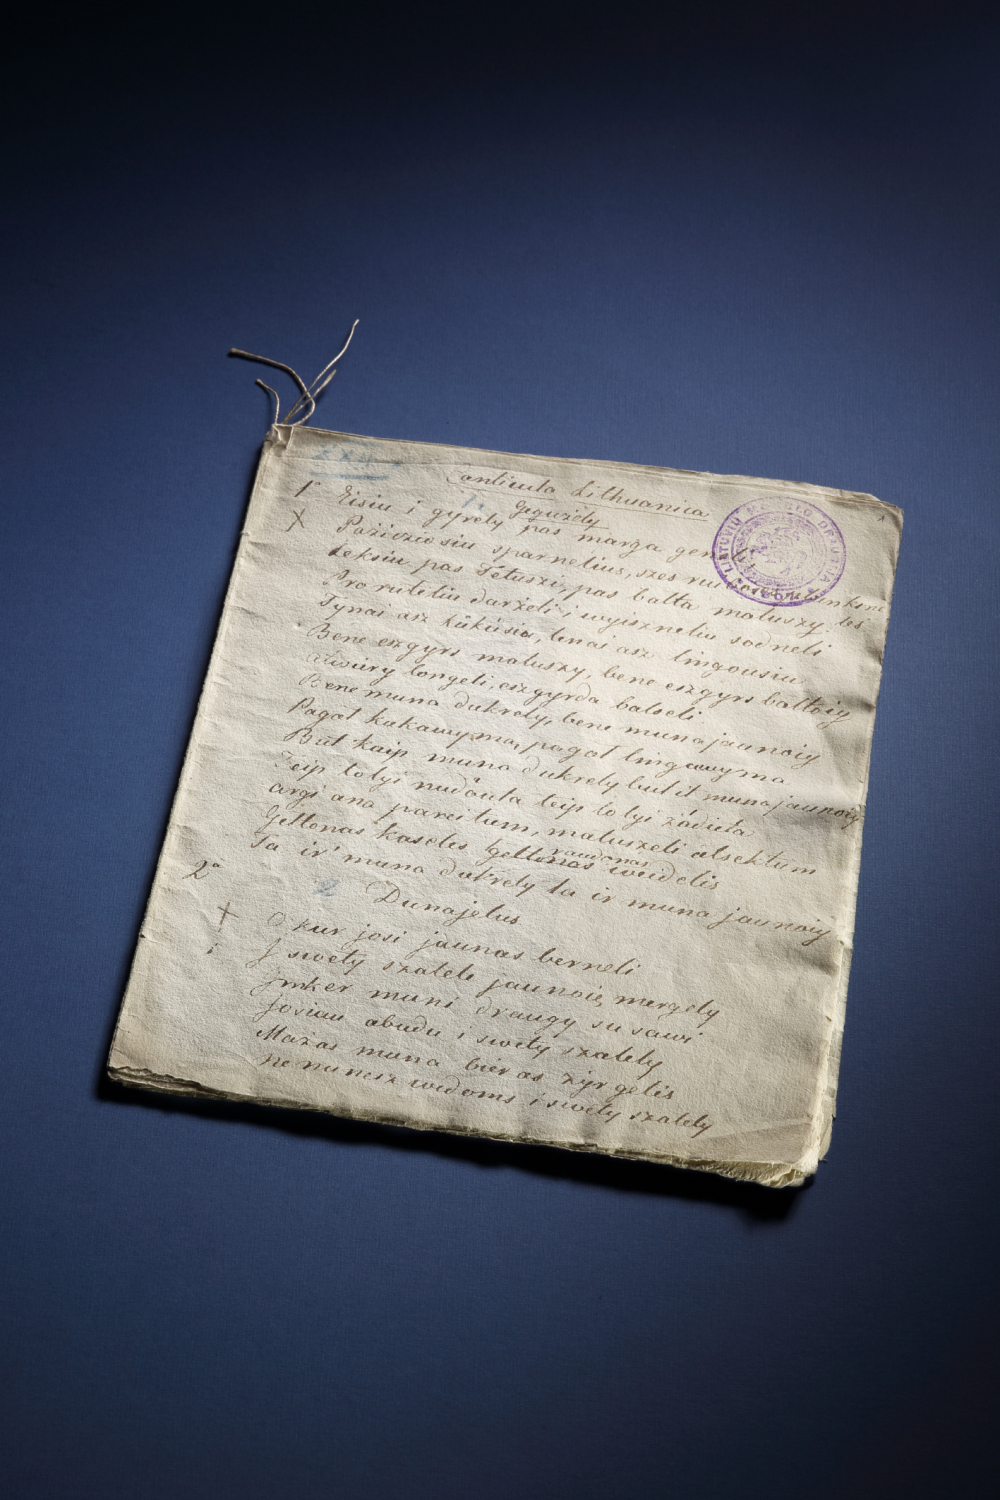 Canticula Lithuanica
1° Gegużely
X Eisiu i gyrely pas marga gen
Pażiczio siu sparnelius, szes ru
Leksiu pas Tetuszi, pas balta matuszy
Pro ruteliu darżeli, i wyszneliu sodneli
Tynai asz kukůsiu, tenai asz lingousiu
Bene eszgyrs matuszy, bene eszgyrs baltoiy
Atwiury longeli, eszgyrda balseli
Bene muna dukrely, bene muna jaunoiy
Pagal kukawyma, pagal lingawyma
But kaip muna dukrely but it muna jaunoiy
Teip tolyi nuduuta teip tolyi żadieta
argi ana pareitum, matuszeli atsektum
raudonas
Geltonas kaseles Geltonas weidelis
Ta ir muna dukrely ta ir muna jaunoiy
2° 2 Dunajelus
† O kur josi jaunas berneli
J swety szaleli jaunoiy mergely
Jmker muni draugy su sawi
Josiau abudu i swety szalely
Mażas muna bieras żyrgelis
ne nunesz wedoms i swety szalely
LIETUVIŲ MOKSLO DRAUGIJA